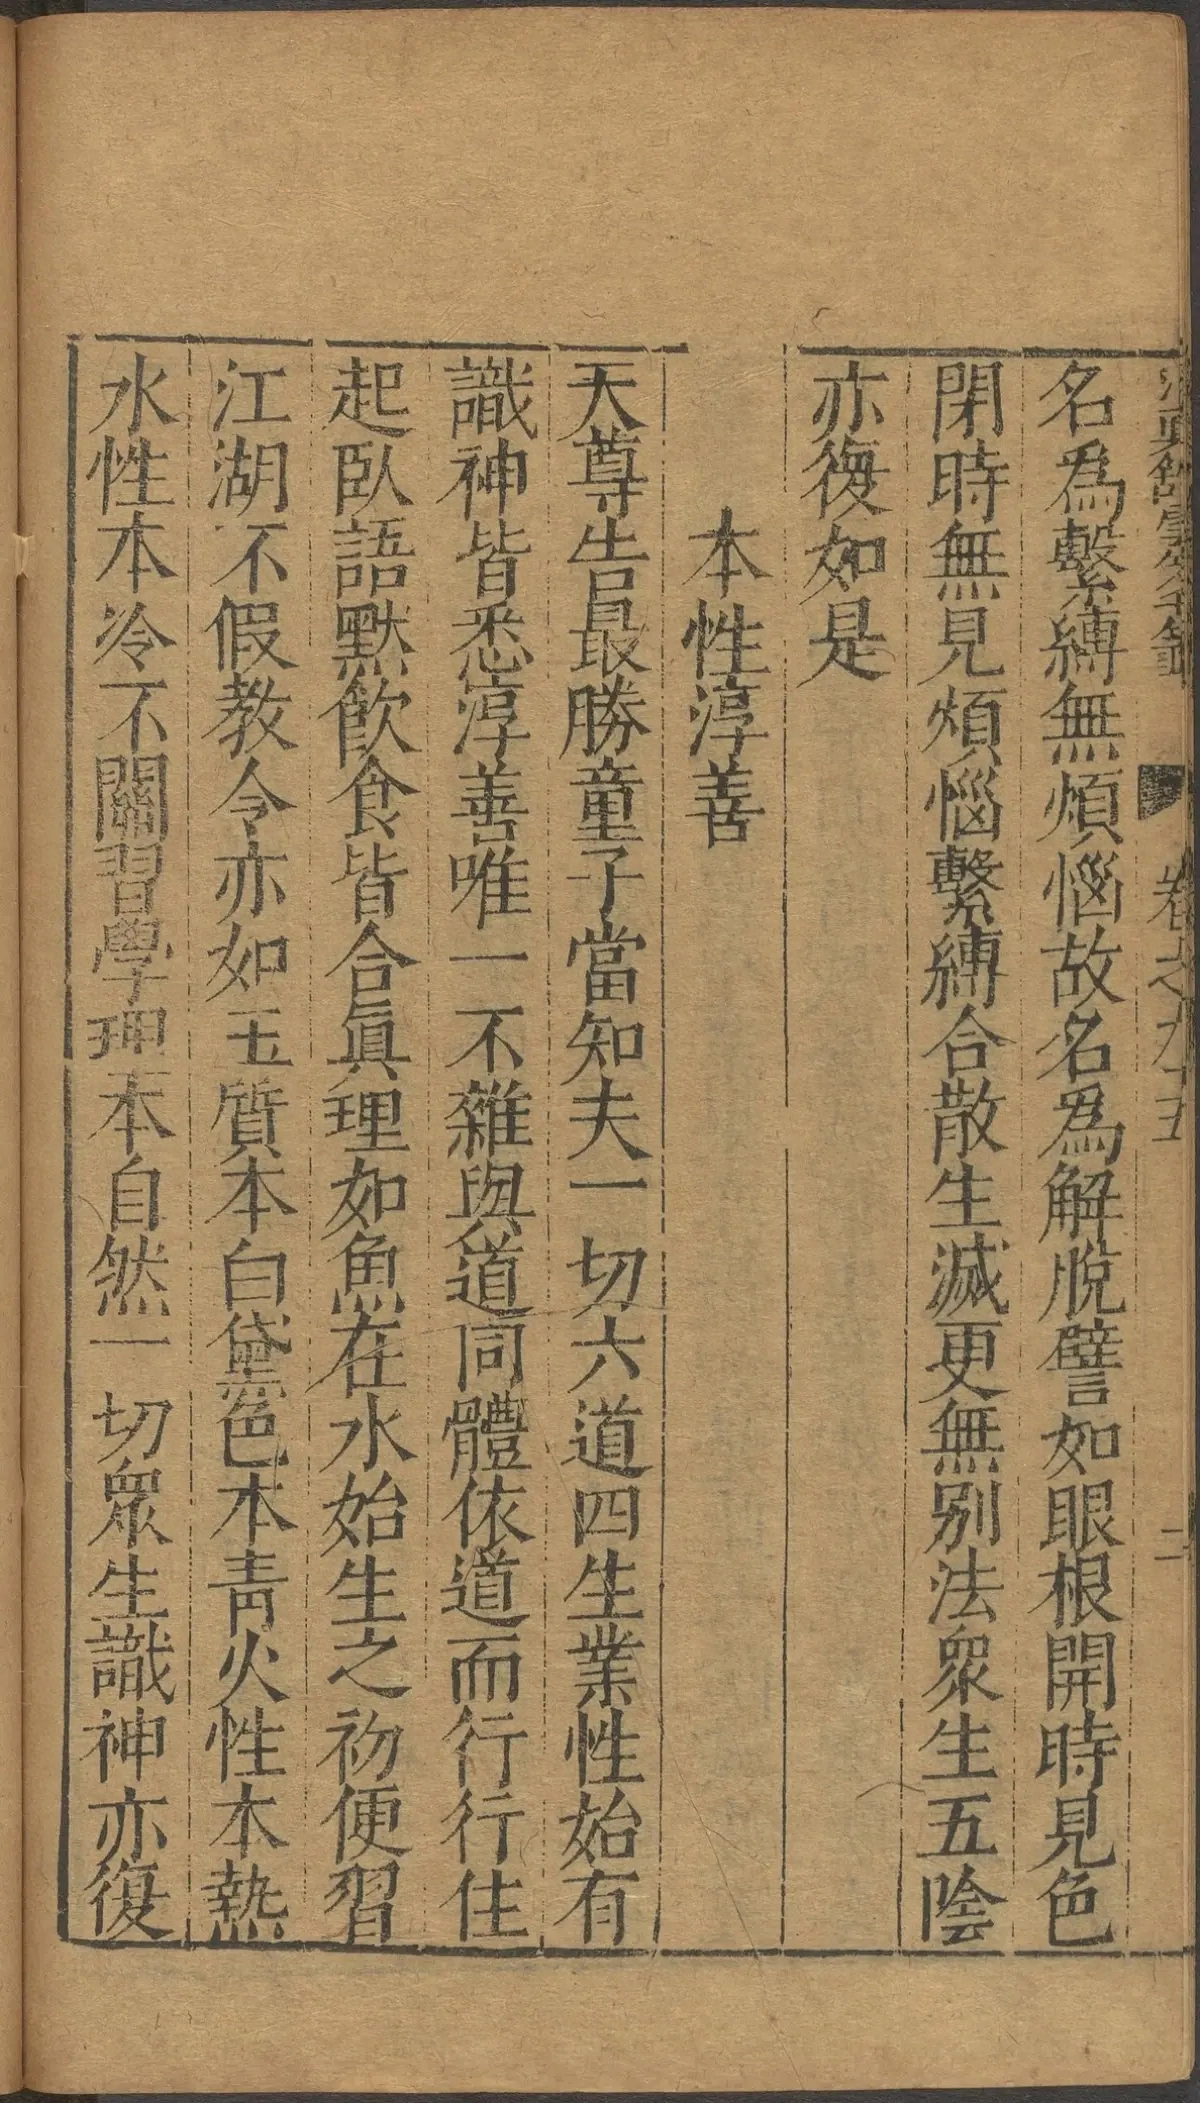 卷之九十五 二
名為繫縛無煩惱故名為解脫譬如眼根開時見色
閉時無見煩惱繫縛合散生滅更無別法眾生五陰
亦復如是
本性淳善
天尊告最勝童子當知夫一切六道四生業性始有
識神皆悉淳善唯一不雜與道同體依道而行行住
起臥語默飲食皆合眞理如魚在水始生之初便習
江湖不假教令亦如玉質本白黛色本青火性本熱
水性本冷不關習學理本自然一切眾生識神亦復